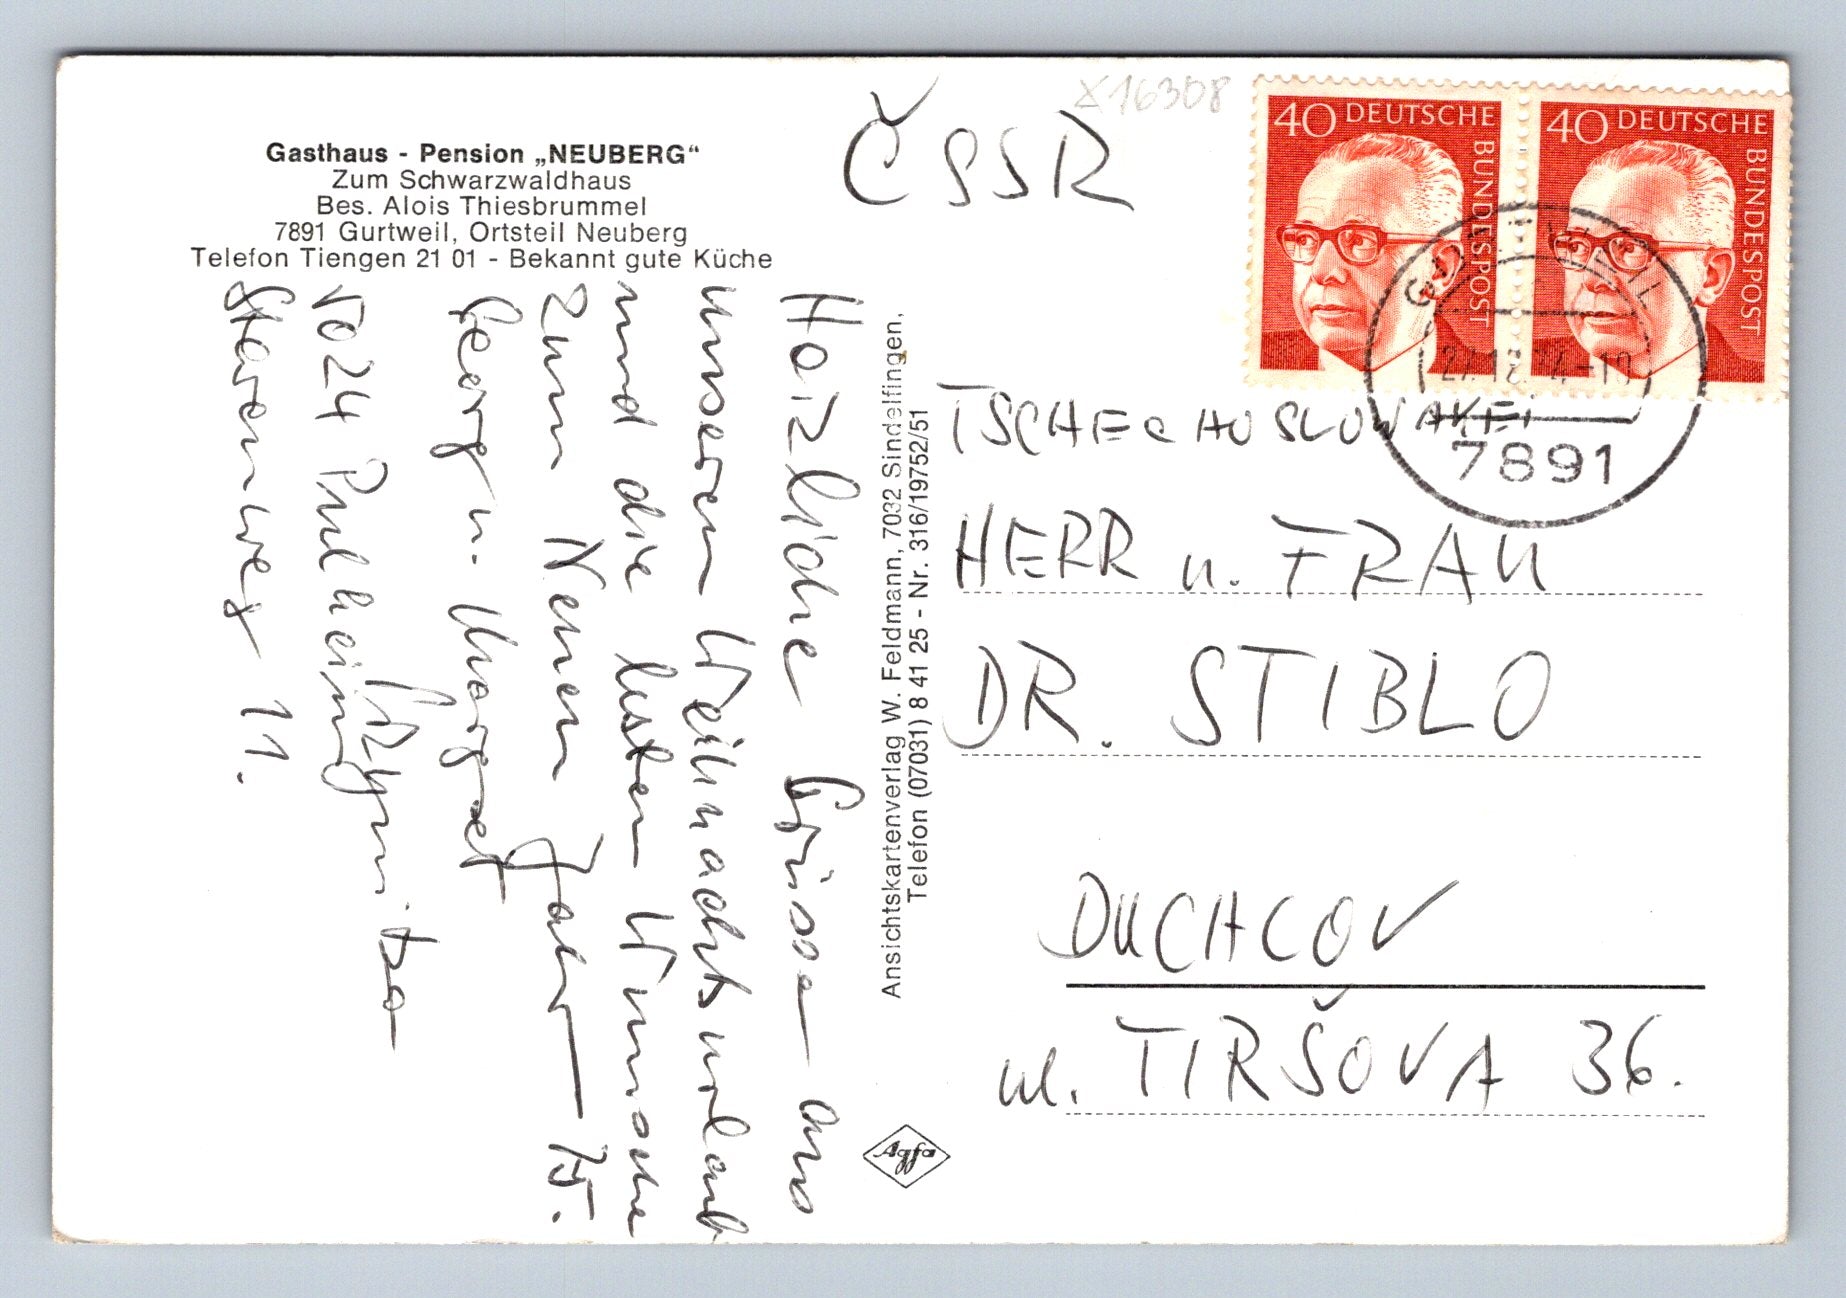 Gasthaus - Pension „NEUBERG“
Zum Schwarzwaldhaus
Bes. Alois Thiesbrummel
7891 Gurtweil, Ortsteil Neuberg
Telefon Tiengen 21 01 - Bekannt gute Küche
Herzliche Grüsse aus
unserem Weihnachtsurlaub
und die besten Wünsche
zum Neuen Jahr 75.
Georg u. Margret
5024 Pulheim
Starenweg 11.
Ansichtskartenverlag W. Feldmann, 7032 Sindelfingen,
Telefon (07031) 8 41 25 - Nr. 316/19752/51
Agfa
X16308
ČSSR
40 DEUTSCHE BUNDESPOST
40 DEUTSCHE BUNDESPOST
GURTWEIL
7891
TSCHECHOSLOWAKEI
HERR u. FRAU
DR. STIBLO
DUCHCOV
ul. TIRŠOVA 36.